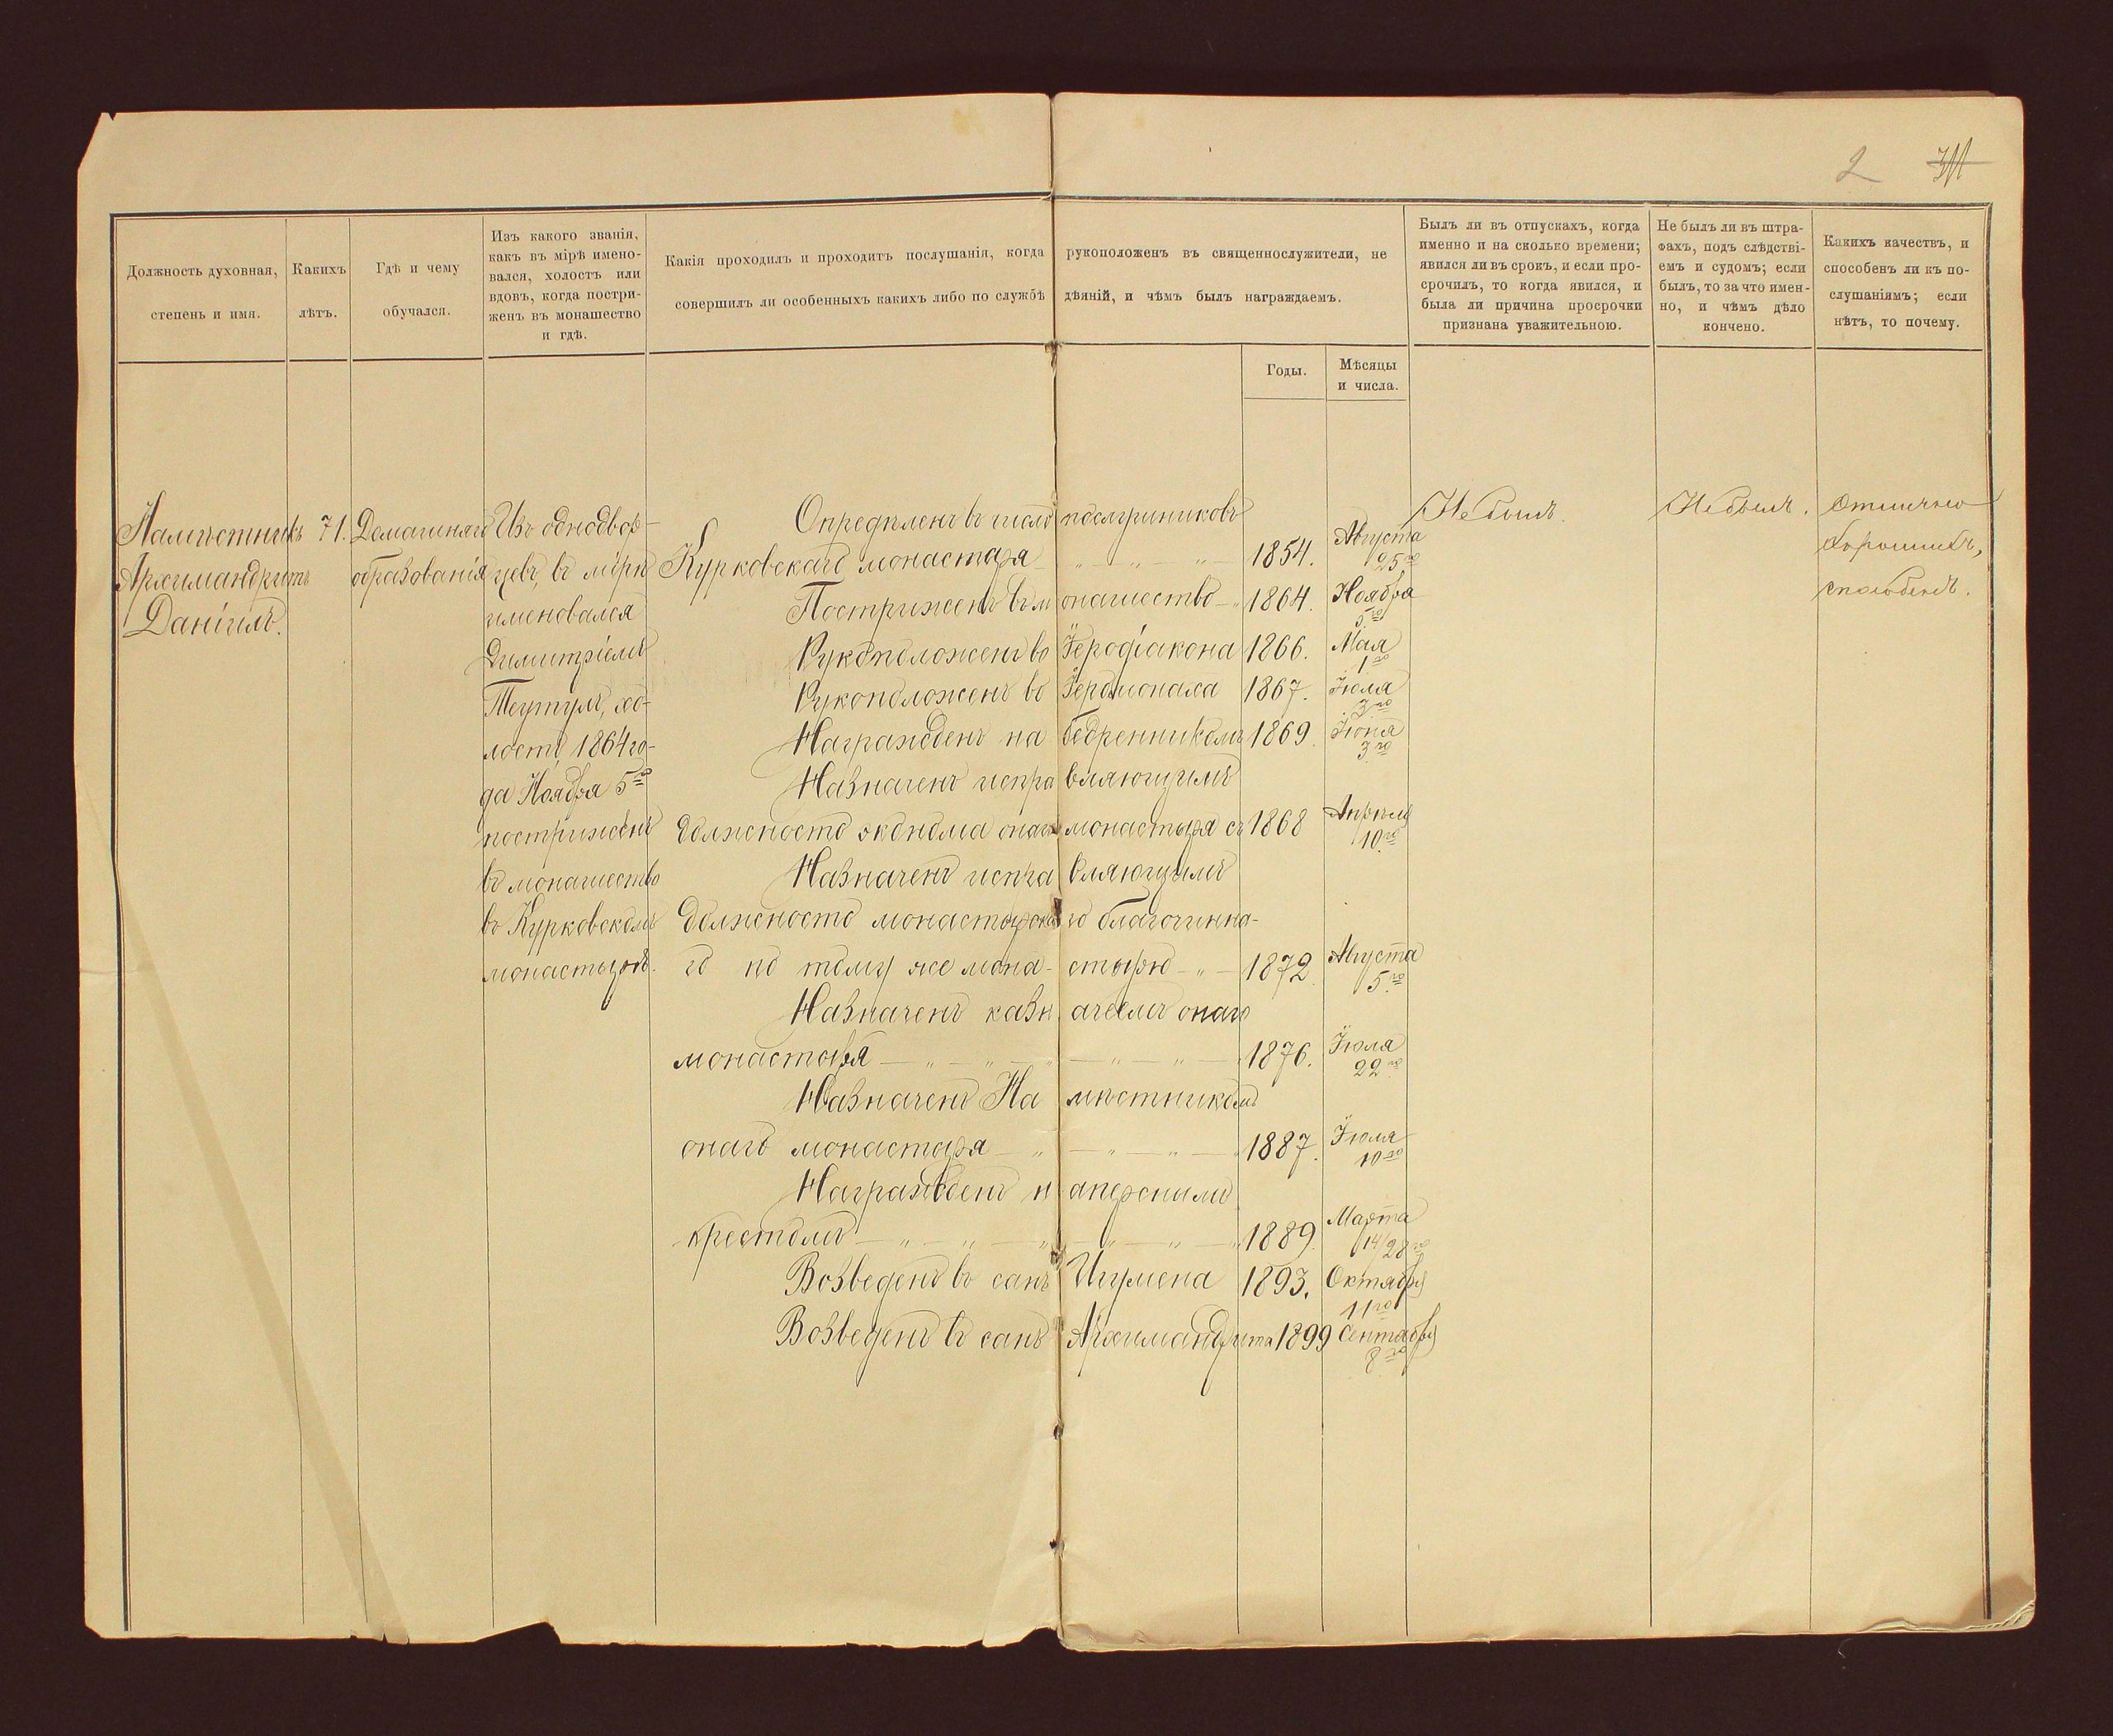 2
Должность духовная,
степень и имя.
Какихъ
лѣтъ.
Гдѣ и чему
обучался.
Изъ какого званія,
какъ въ мірѣ имено-
вался, холостъ или
вдовъ, когда постри-
женъ въ монашество
и гдѣ.
Какія проходилъ и проходитъ послушанія, когда рукоположенъ въ священнослужители, не
совершилъ ли особенныхъ какихъ либо по службѣ дѣяній, и чѣмъ былъ награждаемъ.
Годы.
Мѣсяцы
и числа.
Былъ ли въ отпускахъ, когда
именно и на сколько времени;
явился ли въ срокъ, и если про-
срочилъ, то когда явился, и
была ли причина просрочки
признана уважительною.
Не былъ ли въ штра-
фахъ, подъ слѣдстві-
емъ и судомъ; если
былъ, то за что имен-
но, и чѣмъ дѣло
кончено.
Какихъ качествъ, и
способенъ ли къ по-
слушаніямъ; если
нѣтъ, то почему.
Намѣстникъ
Архимандритъ
Даніилъ.
71.
Домашняго
образованія
Изъ однодвор-
цевъ, въ мірѣ
именовался
Димитріемъ
хо-
лостъ, 1864 го-
да Ноября 5го
постриженъ
въ монашество
въ Курковскомъ
монастырѣ.
Опредѣленъ въ число послушниковъ
Курковскаго монастыря - „ - „ - „ - 1854. Августа
25го
Постриженъ въ монашество - „ 1864. Ноября
5го
Рукоположенъ во Іеродіакона 1866. Мая
1го
Рукоположенъ во Іеромонаха 1867. Іюля
3го
Награжденъ набедренникомъ 1869. Іюня
3го
Назначенъ исправляющимъ
должность эконома онаго монастыря съ 1868 Апрѣля
10го
Назначенъ исправляющимъ
должность монастырскаго благочинна-
го по тому же монастырю - „ - 1872. Августа
5го
Назначенъ казначеемъ онаго
монастыря - „ - „ - „ - „ - „ - 1876. Іюля
22го
Назначенъ Намѣстникомъ
онаго монастыря - „ - „ - „ - 1887. Іюля
10го
Награжденъ наперснымъ
крестомъ - „ - „ - „ - „ - „ - „ 1889. Марта
14/28го
Возведенъ въ санъ Игумена 1893. Октября
11го
Возведенъ въ санъ Архимандрита 1899 Сентября
8го
Не былъ.
Не былъ.
Отлично
хорошихъ,
способенъ.